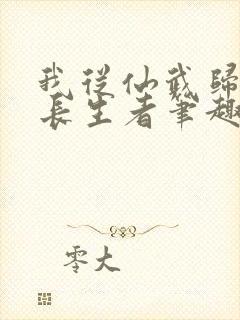 我從仙武歸
長生者筆趣
零大